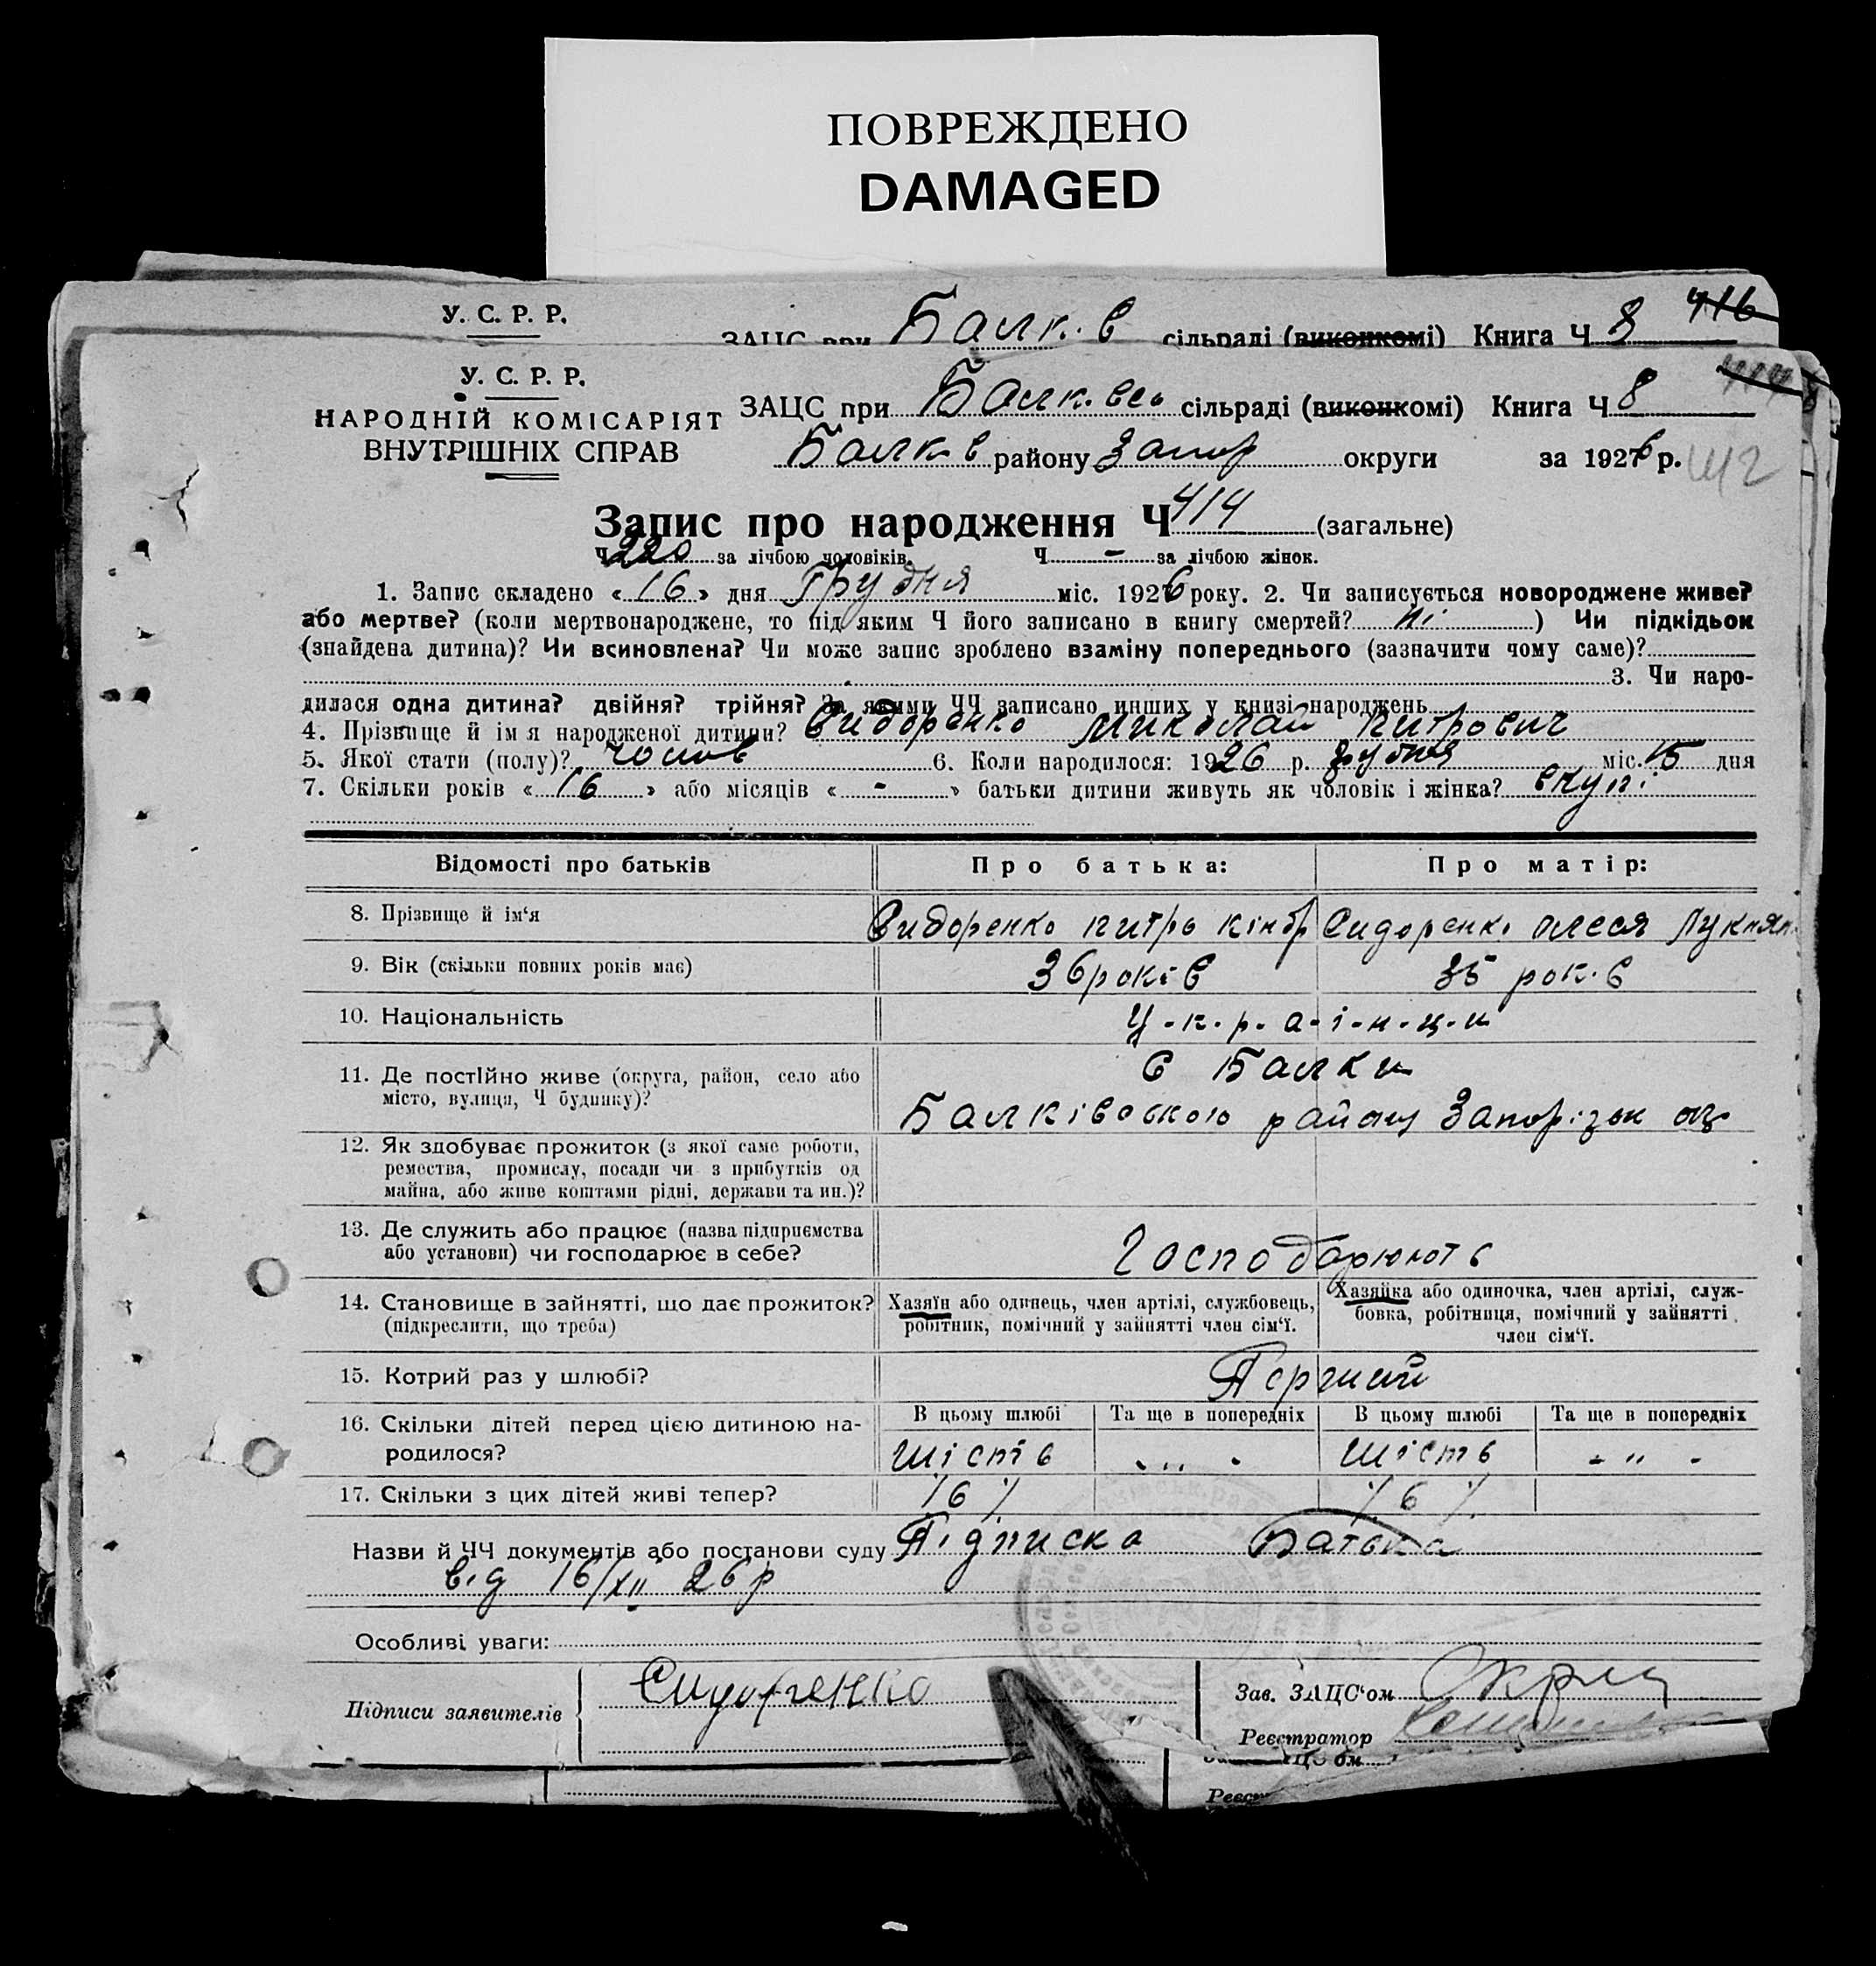 ПОВРЕЖДЕНО
DAMAGED
У. С. Р. Р.
ЗАЦС при Балк. в сільраді (виконкомі) Книга Ч 8 416
У. С. Р. Р.
НАРОДНІЙ КОМІСАРІЯТ
ВНУТРІШНІХ СПРАВ
ЗАЦС при Балк. сільраді (виконкомі) Книга Ч 8
Балк в району Запор округи за 1926 р.
Запис про народження Ч 414 (загальне)
Ч 220 за лічбою чоловіків. Ч - за лічбою жінок.
1. Запис складено « 16 » дня Грудня міс. 1926 року. 2. Чи записується новороджене живе?
або мертве? (коли мертвонароджене, то під яким Ч його записано в книгу смертей? Ні ) Чи підкідьок
(знайдена дитина)? Чи всиновлена? Чи може запис зроблено взаміну попереднього (зазначити чому саме)?
3. Чи наро-
дилася одна дитина? двійня? трійня? За якими ЧЧ записано инших у книзі народжень
4. Прізвище й імя народженої дитини? Сидоренко Миколай Питрович
5. Якої стати (полу)? чолов 6. Коли народилося: 1926 р. грудня міс. 15 дня
7. Скільки років « 16 » або місяців « - » батьки дитини живуть як чоловік і жінка? вкупі
Відомості про батьків Про батька: Про матір:
8. Прізвище й ім‘я Сидоренко Питро Кіндр Сидоренко Олеся Лукиян.
9. Вік (скільки повних років має) 36 років 35 рок. в
10. Національність У-к-р-а-ї-н-ц-и
11. Де постійно живе (округа, район, село або
місто, вулиця, Ч будинку)?
с Балки
Балківського району Запорізьк окр
12. Як здобуває прожиток (з якої саме роботи,
ремества, промислу, посади чи з прибутків од
майна, або живе коштами рідні, держави та ин.)?
13. Де служить або працює (назва підприємства
або установи) чи господарює в себе?
Господарюють
14. Становище в зайнятті, що дає прожиток?
(підкреслити, що треба)
Хазяїн або одинець, член артілі, службовець,
робітник, помічний у зайнятті член сім‘ї.
Хазяйка або одиночка, член артілі, служ-
бовка, робітниця, помічний у зайнятті
член сім‘ї.
15. Котрий раз у шлюбі? Перший
16. Скільки дітей перед цією дитиною на-
родилося?
В цьому шлюбі Та ще в попередніх В цьому шлюбі Та ще в попередніх
шість - " - шість - " -
17. Скільки з цих дітей живі тепер? /6/ /6/
Назви й ЧЧ документів або постанови суду Підписка Батька
від 16/XII 26 р
Особливі уваги:
Підписи заявителів Сидоренко
Зав. ЗАЦС‘ом
Реєстратор